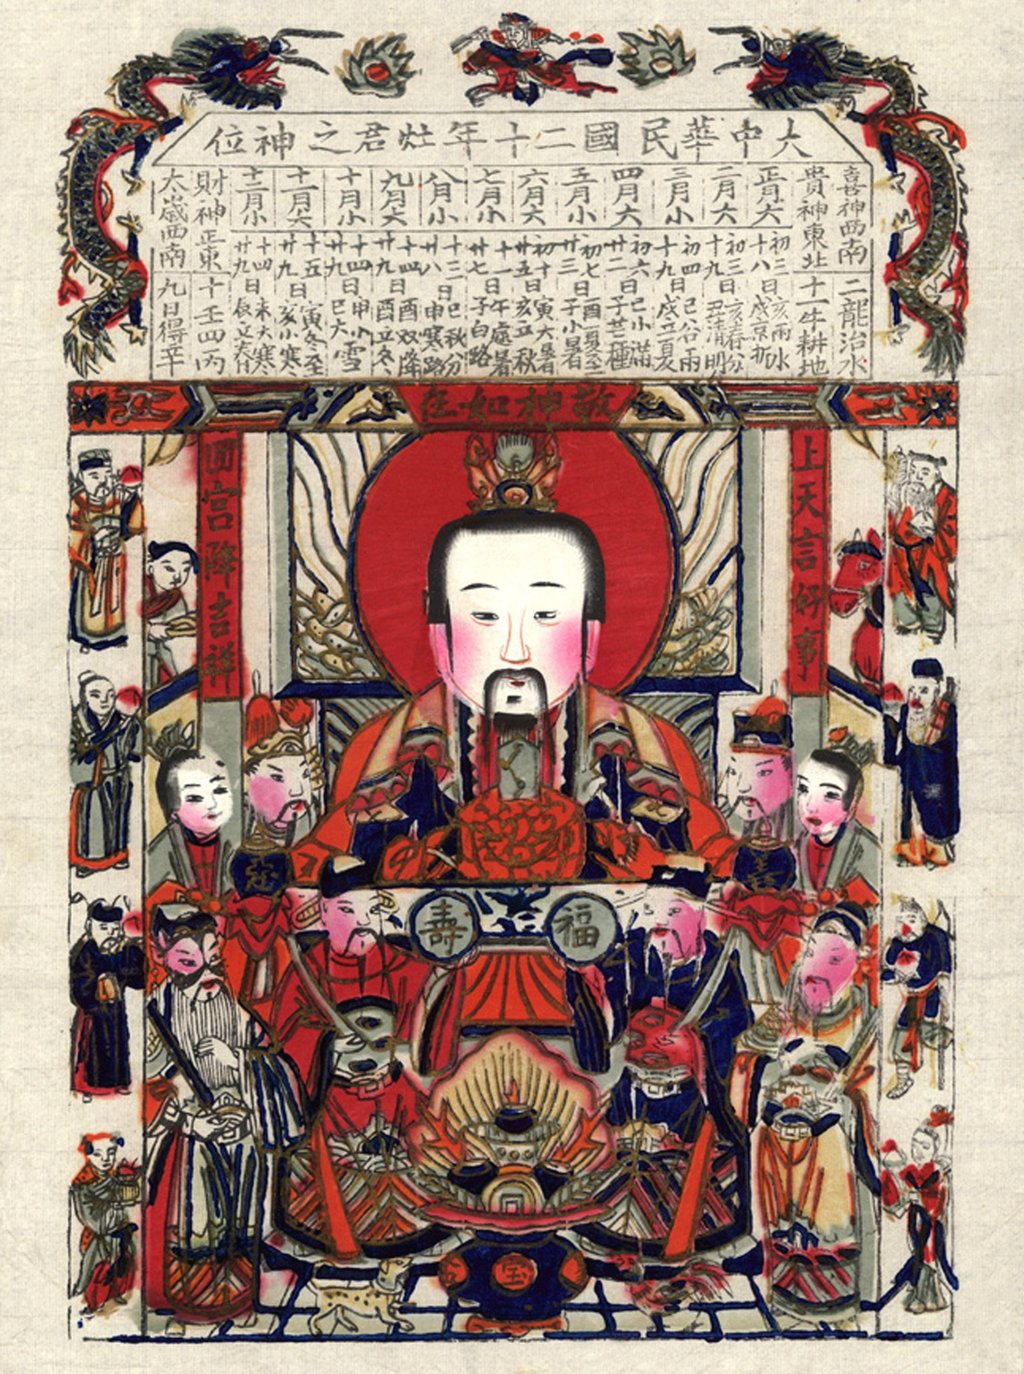 大中華民國二十年灶君之神位
喜神西南
二龍治水
貴神東北
十一牛耕地
正月大
初三日亥雨水
十八日戌京折
二月大
初三日亥春分
十九日丑清明
三月小
初四日巳谷雨
十九日戌立夏
四月大
初六日巳小滿
廿二日子芒種
五月小
初七日酉夏至
廿三日子小暑
六月大
初十日寅大暑
廿五日亥立秋
七月小
十一日午處暑
廿七日子白路
八月小
十三日巳秋分
廿八日申寒路
九月大
十四日酉双降
廿九日酉立冬
十月小
十四日申小雪
廿九日巳大雪
十一月大
十五日寅冬至
廿九日亥小寒
十二月小
十四日未大寒
廿九日辰立春
財神正東
十壬四丙
太歲西南
九日得辛
敬神如在
上天言好事
回宫降吉祥
善
福
壽
宝